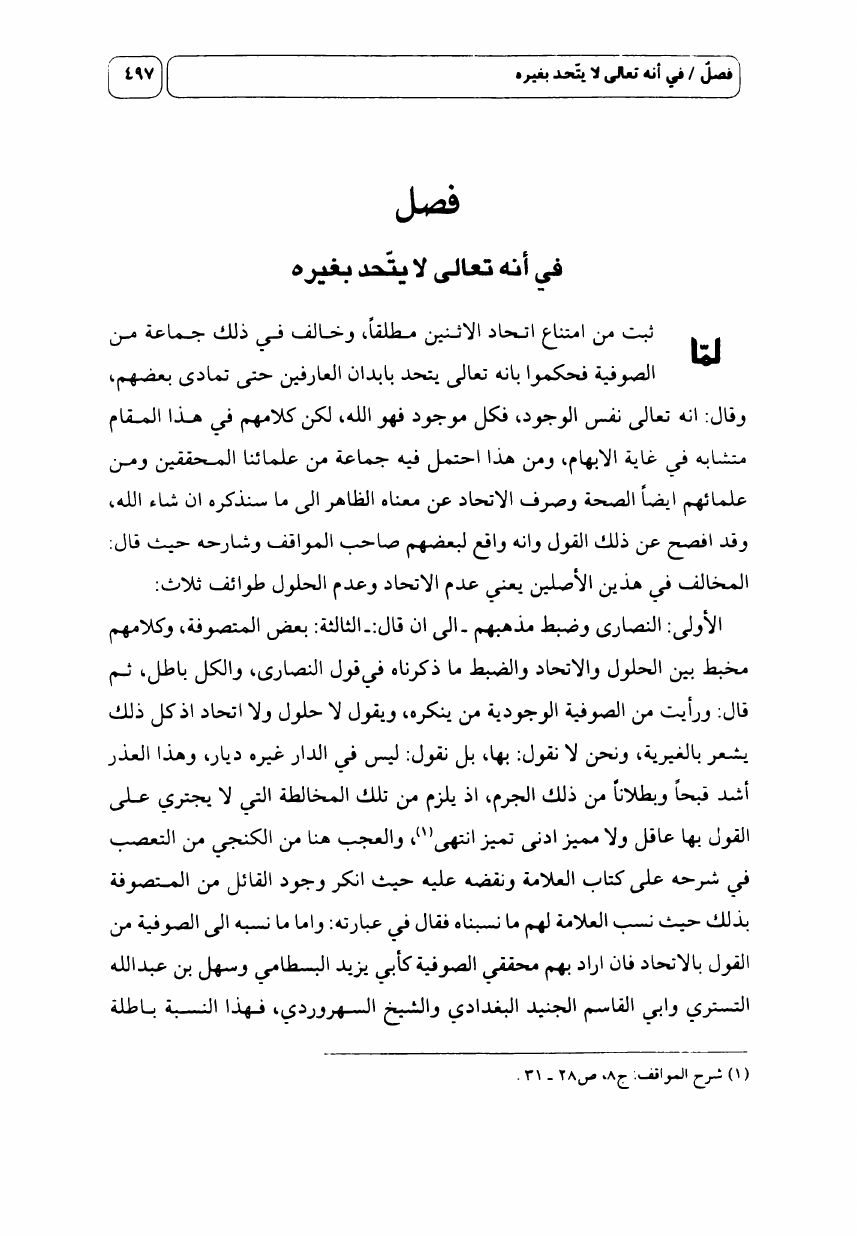 فصلٌ / في أنه تعالى لا يتّحد بغيره
٤٩٧
فصل
في أنه تعالى لا يتّحد بغيره
لمّا ثبت من امتناع اتحاد الاثنين مطلقاً، وخالف في ذلك جماعة من
الصوفية فحكموا بانه تعالى يتحد بابدان العارفين حتى تمادى بعضهم،
وقال: انه تعالى نفس الوجود، فكل موجود فهو الله، لكن كلامهم في هذا المقام
متشابه في غاية الابهام، ومن هذا احتمل فيه جماعة من علمائنا المحققين ومن
علمائهم ايضاً الصحة وصرف الاتحاد عن معناه الظاهر الى ما سنذكره ان شاء الله،
وقد افصح عن ذلك القول وانه واقع لبعضهم صاحب المواقف وشارحه حيث قال:
المخالف في هذين الأصلين يعني عدم الاتحاد وعدم الحلول طوائف ثلاث:
الأولى: النصارى وضبط مذهبهم ـ الى ان قال:ـ الثالثة: بعض المتصوفة، وكلامهم
مخبط بين الحلول والاتحاد والضبط ما ذكرناه في قول النصارى، والكل باطل، ثم
قال: ورأيت من الصوفية الوجودية من ينكره، ويقول لا حلول ولا اتحاد اذ كل ذلك
يشعر بالغيرية، ونحن لا نقول: بها، بل نقول: ليس في الدار غيره ديار، وهذا العذر
أشد قبحاً وبطلاناً من ذلك الجرم، اذ يلزم من تلك المخالطة التي لا يجتري على
القول بها عاقل ولا مميز ادنى تميز انتهى(١)، والعجب هنا من الكنجي من التعصب
في شرحه على كتاب العلامة ونقضه عليه حيث انكر وجود القائل من المتصوفة
بذلك حيث نسب العلامة لهم ما نسبناه فقال في عبارته: واما ما نسبه الى الصوفية من
القول بالاتحاد فان اراد بهم محققي الصوفية كأبي يزيد البسطامي وسهل بن عبدالله
التستري وابي القاسم الجنيد البغدادي والشيخ السهروردي، فهذا النسبة باطلة
(١) شرح المواقف: ج٨، ص٢٨ ـ ٣١ .